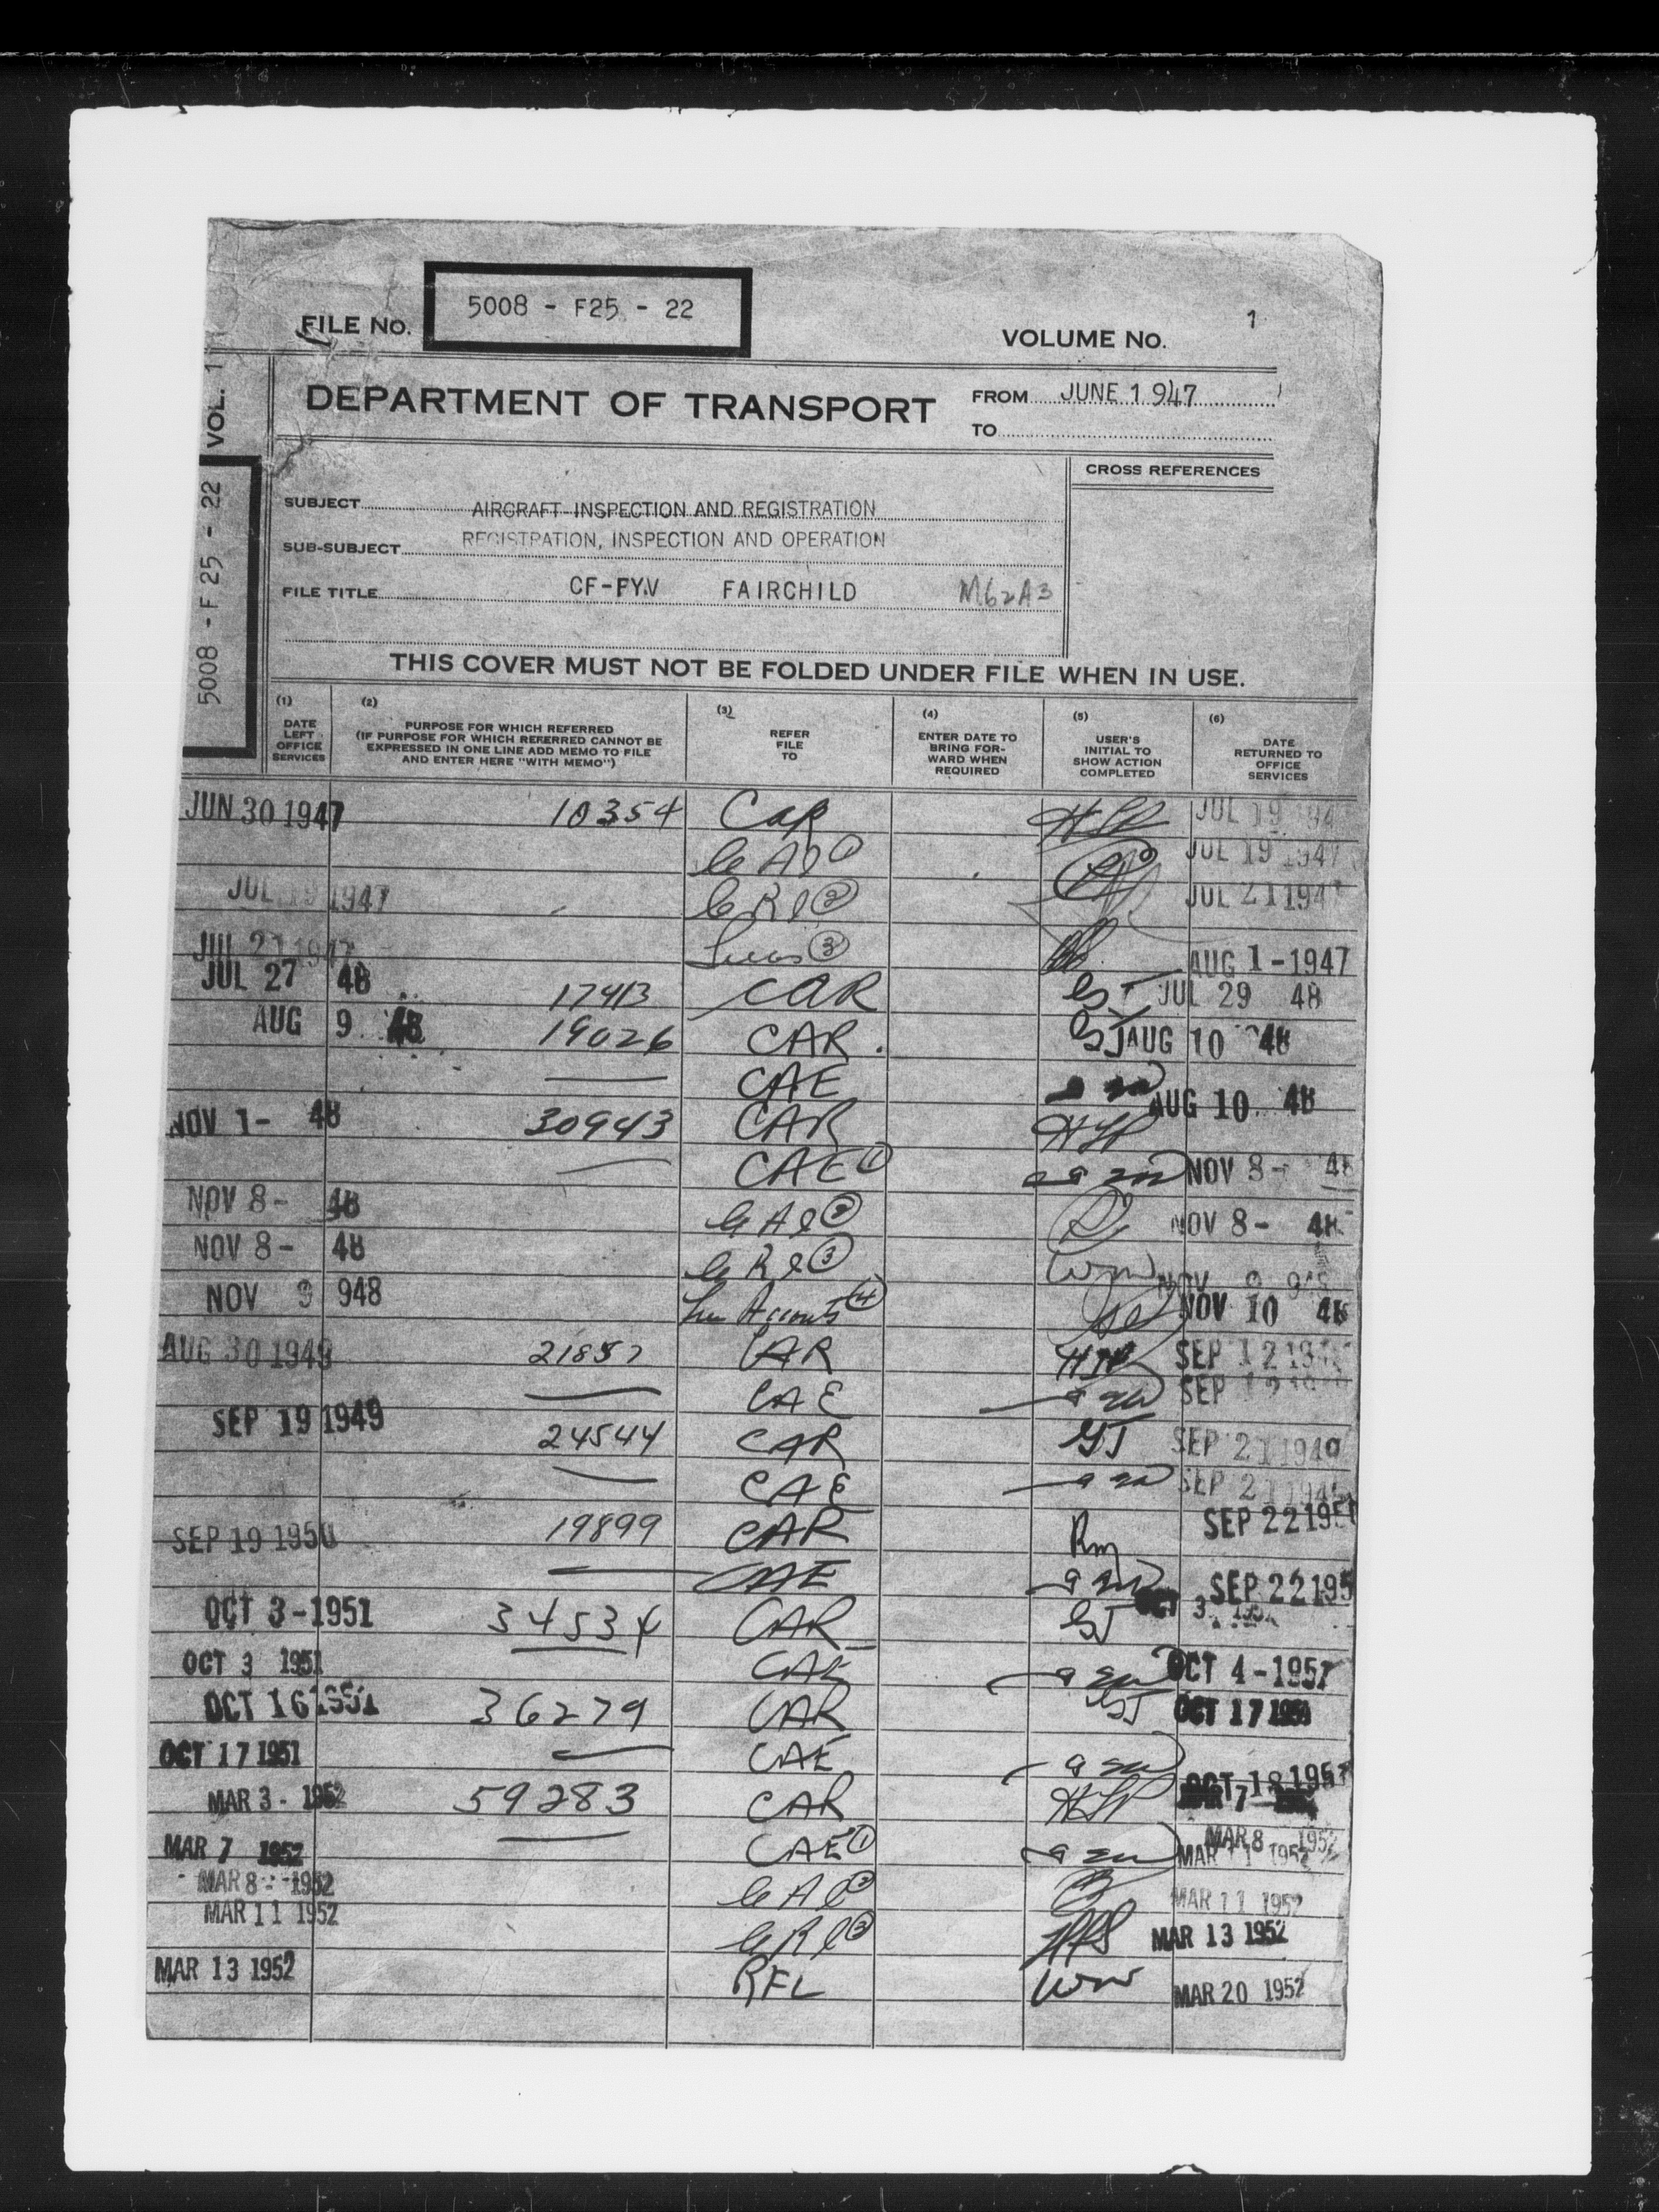 FILE No. 5008 - F25 - 22
VOLUME No. 1
VOL. 1
5008 - F25 - 22
DEPARTMENT OF TRANSPORT
FROM JUNE 1947
TO
CROSS REFERENCES
SUBJECT AIRCRAFT INSPECTION AND REGISTRATION
SUB-SUBJECT REGISTRATION, INSPECTION AND OPERATION
FILE TITLE CF-FYV FAIRCHILD M62A3
THIS COVER MUST NOT BE FOLDED UNDER FILE WHEN IN USE.
(1) DATE LEFT OFFICE SERVICES
(2) PURPOSE FOR WHICH REFERRED (IF PURPOSE FOR WHICH REFERRED CANNOT BE EXPRESSED IN ONE LINE ADD MEMO TO FILE AND ENTER HERE "WITH MEMO")
(3) REFER FILE TO
(4) ENTER DATE TO BRING FOR- WARD WHEN REQUIRED
(5) USER'S INITIAL TO SHOW ACTION COMPLETED
(6) DATE RETURNED TO OFFICE SERVICES
JUN 30 1947 10354 CAR JUL 19 194
1 JUL 19 1947
JUL 19 1947 2 JUL 21 194
JUL 21 1947 3 AUG 1-1947
JUL 27 48 17413 CAR JUL 29 48
AUG 9 48 19026 CAR. AUG 10 48
CAE AUG 10 48
NOV 1- 48 30943 CAR
CAE 1 NOV 8- 48
NOV 8- 48 2 NOV 8- 48
NOV 8- 48 3 NOV 9 948
NOV 9 948 4 NOV 10 48
AUG 30 1949 21857 CAR SEP 12 19
CAE SEP 12 19
SEP 19 1949 24544 CAR GJ SEP 21 1949
CAE SEP 21 194
SEP 19 1950 19899 CAR Rm SEP 22 195
CAE SEP 22 195
OCT 3-1951 34534 CAR OCT 3
OCT 3 1951 CAE OCT 4-1951
OCT 16 1951 36279 CAR OCT 17 1951
OCT 17 1951 CAE OCT 18 195
MAR 3- 1952 59283 CAR
MAR 7 1952 CAE 1 MAR 8 1952
MAR 11 1952
MAR 8- 1952 2 MAR 11 1952
MAR 11 1952 3 MAR 13 1952
MAR 13 1952 RFL MAR 20 1952